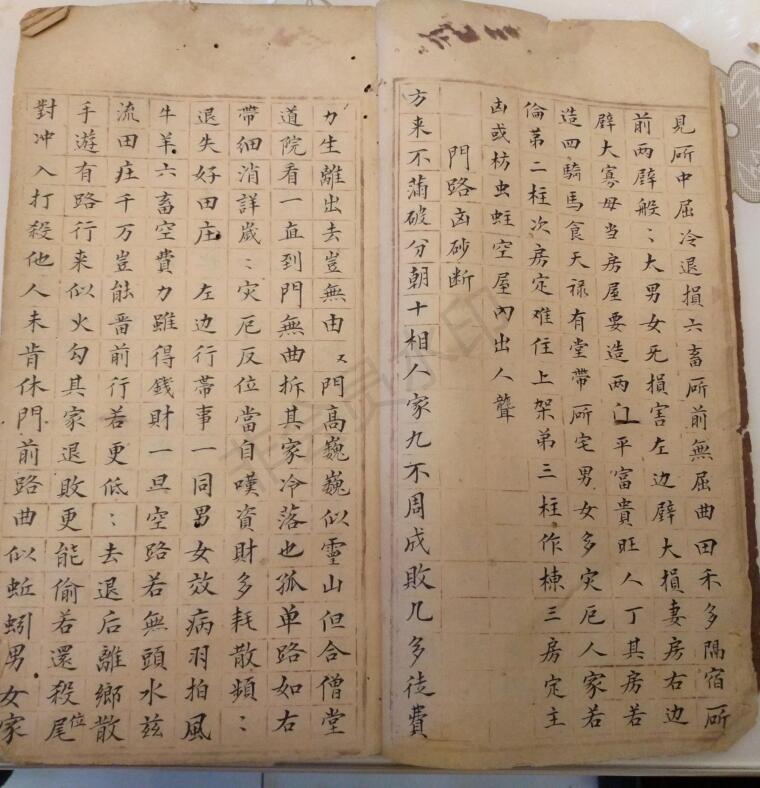 見所中屈冷退損六畜所前無屈曲田禾多隔宿所
前兩臂般:大男女死損害左边臂大損妻房右边
臂大寡母当房屋要造两门平富貴旺人丁其房若
造四騎馬食天禄有堂帶所宅男女多灾厄人家若
倫第二柱次房定难住上架弟三柱作棟三房定主
凶或枋虫蛀空屋內出人聾
門路凶砂断
方来不蒲破分朝十相人家九不周成敗几多徒費
力生離出去豈無由又門高巍巍似靈山但合僧堂
道院看一直到門無曲折其家冷落也孤单路如右
帶細消詳歲:灾厄反位當自嘆資財多耗散頻:
退失好田庄左边行帶事一同男女效病羽拍風
牛羊六畜空費力雖得錢財一旦空路若無頭水茲
流田庄千万豈能番前行若更低:去退后離鄉散
手遊有路行来似火勾其家退敗更能偷若還殺位尾
對冲入打殺他人未肯休門前路曲似蚯蚓男女家